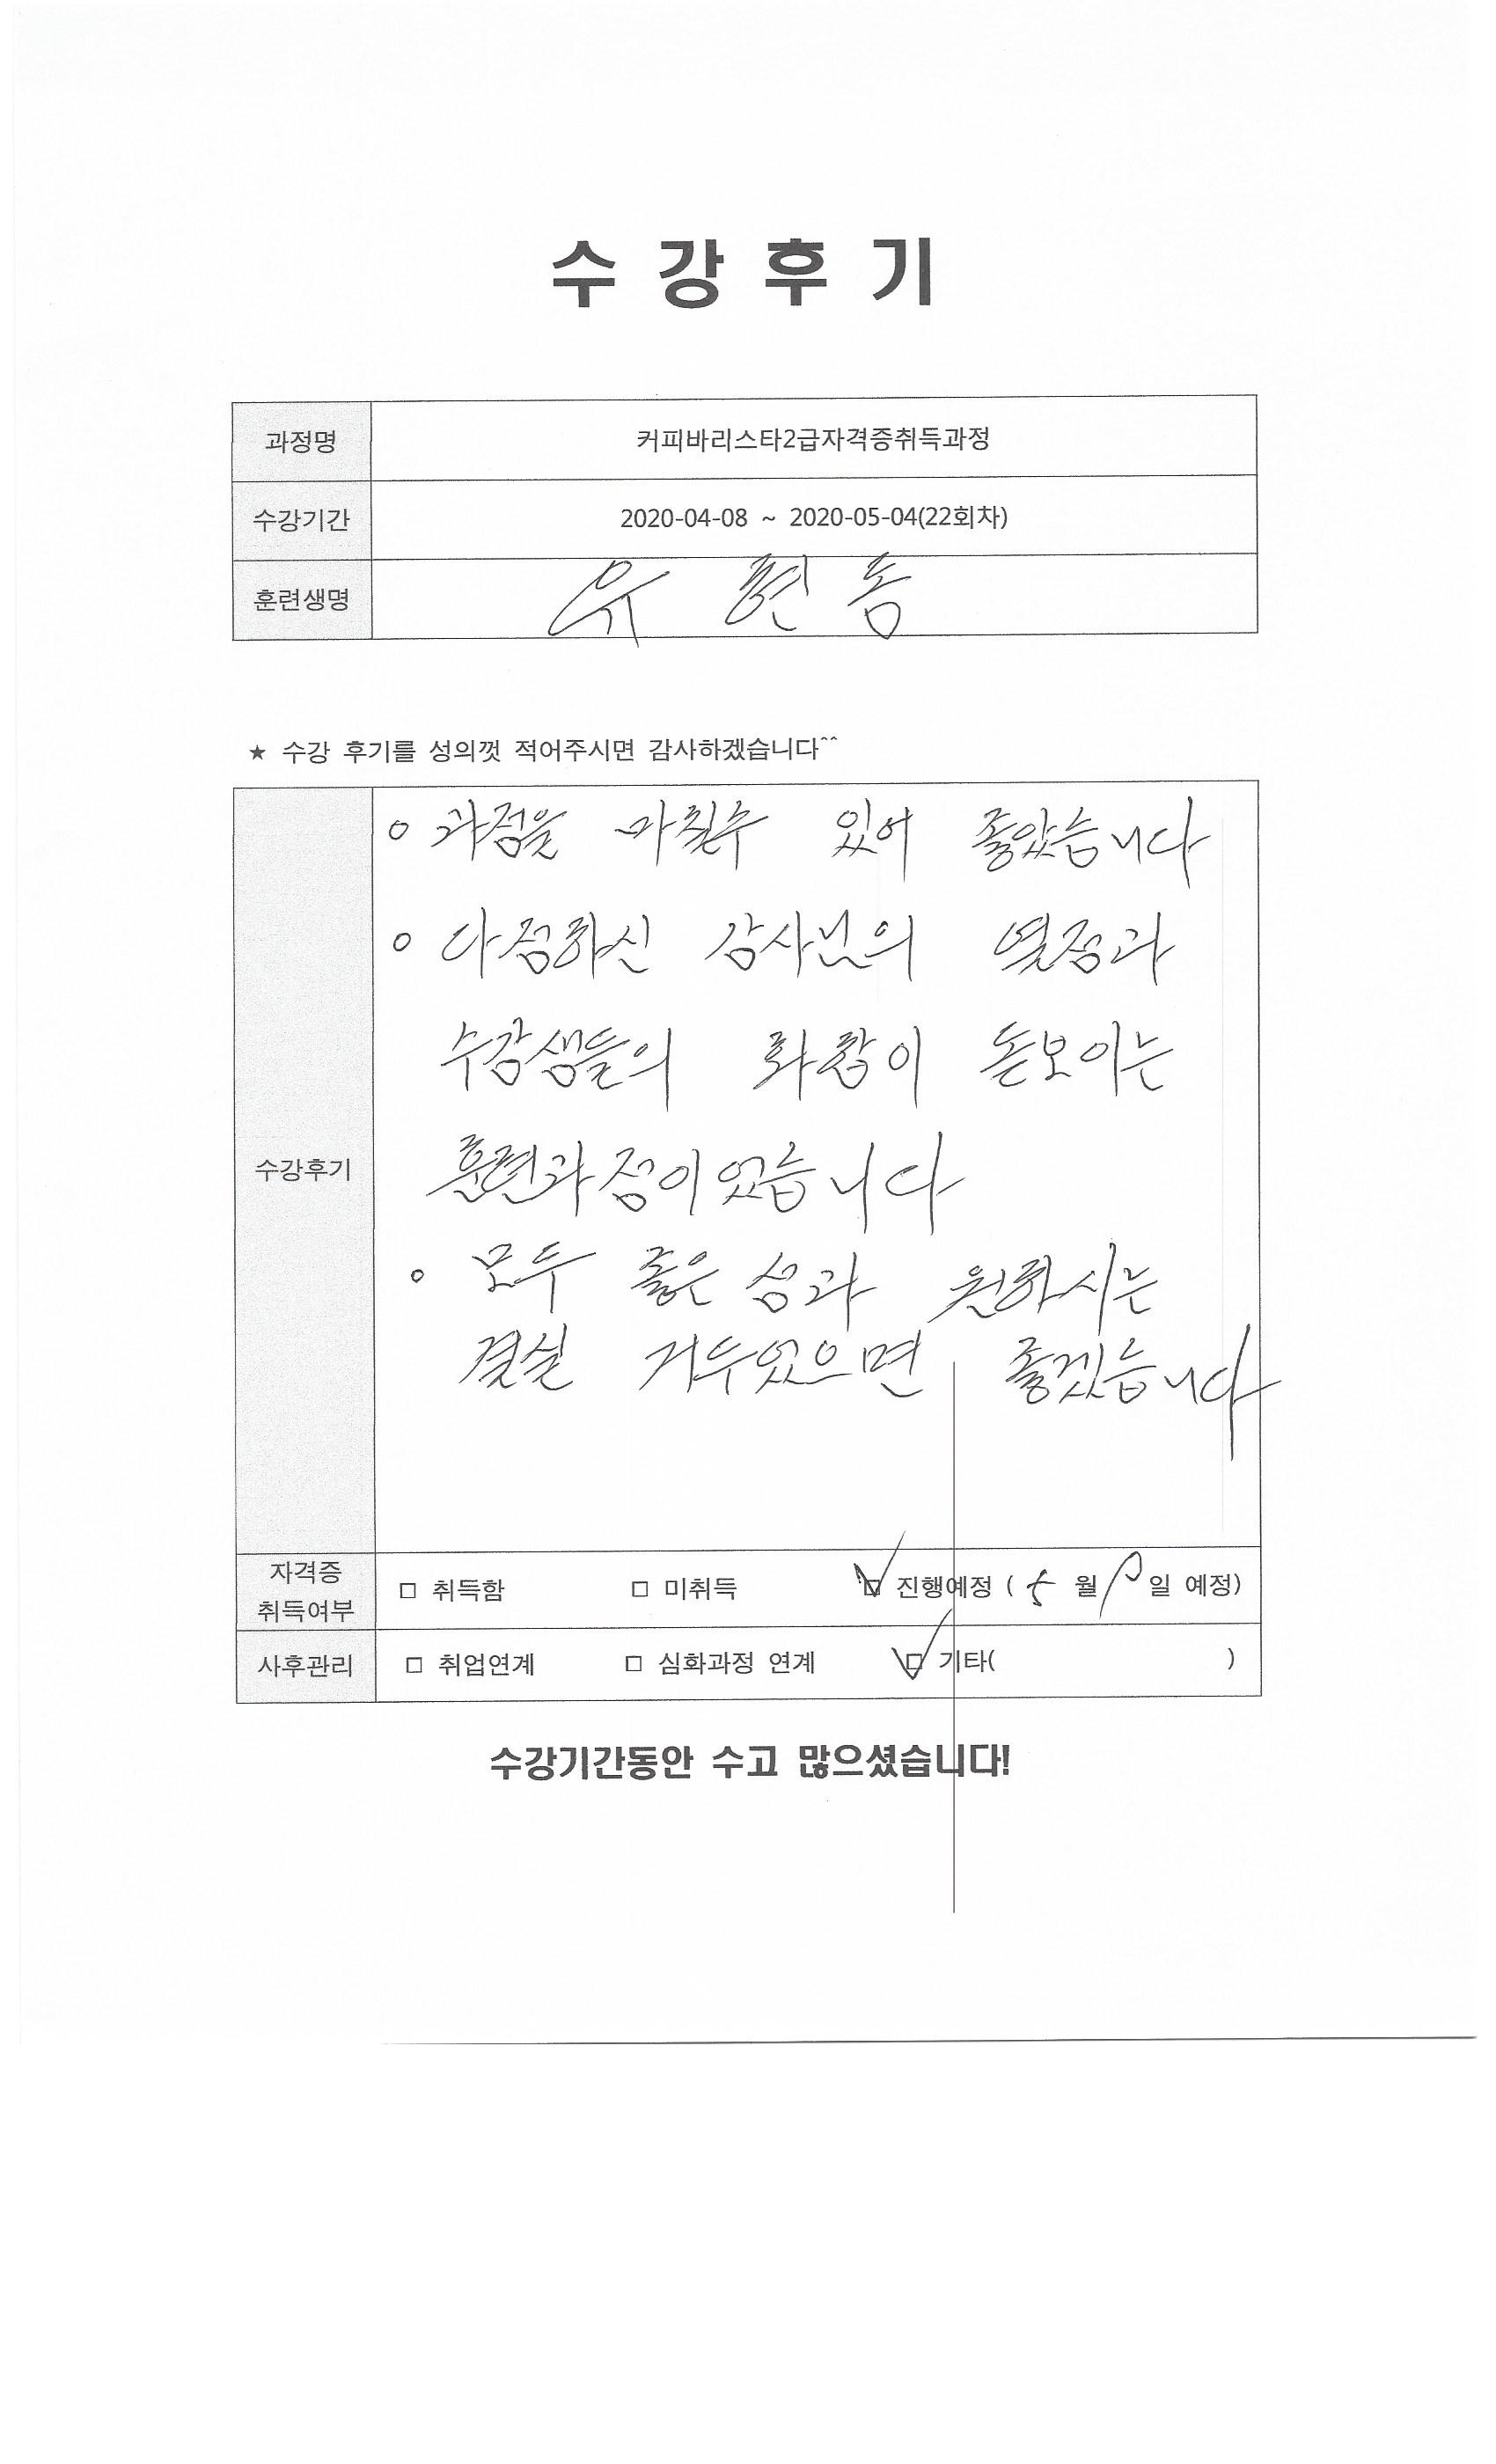 수강후기
과정명 커피바리스타2급자격증취득과정
수강기간 2020-04-08 ~ 2020-05-04(22회차)
훈련생명 유현동
★ 수강 후기를 성의껏 적어주시면 감사하겠습니다^^
수강후기
o 과정을 마칠수 있어 좋았습니다
o 다정하신 강사님의 열정과
수강생들의 화합이 돋보이는
훈련과정이었습니다
o 모두 좋은 성과 원하시는
결실 거두었으면 좋겠습니다
자격증
취득여부
□ 취득함 □ 미취득 ☑ 진행예정 ( 5 월 일 예정)
사후관리 □ 취업연계 □ 심화과정 연계 ☑ 기타( )
수강기간동안 수고 많으셨습니다!